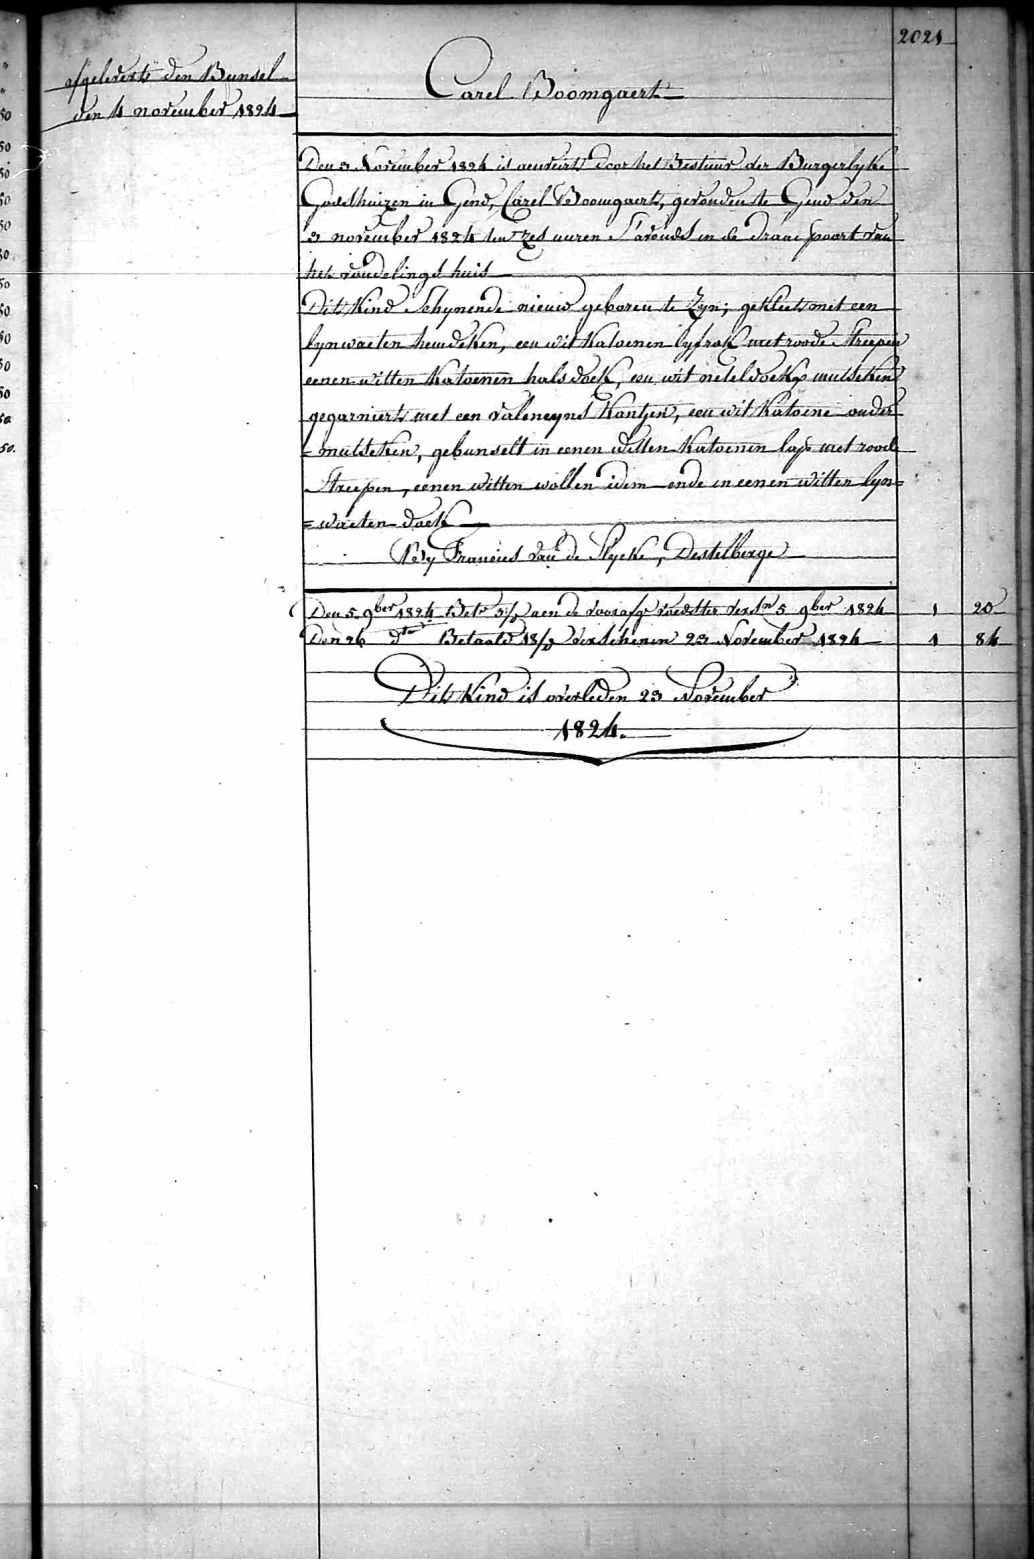 2021
afgelevert den Bunsel
den 4 november 1824
Carel Boomgaert
Den 3 November 1824 is aenveirt door het Bestuur der Burgerlyke
Godshuizen in Gend, Carel Boomgaert, gevonden te Gend den
3 november 1824 ten zes uuren s'avonds in de draai poort van
het vondelings huis
Dit Kind Schynende nieuw geboren te Zyn; gekleet met een
lynwaeten hemdeken, een wit Katoenen lyfrok met roode Streepen
eenen witten Katoenen halsdoek, een wit neteldoek mutseken
gegarniert met een valencyns Kantjen, een wit Katoene onder
=mutseken, gebunselt in eenen witten Katoenen lap met roode
Streepen, eenen witten wollen idem ende in eenen witten lyn=
=waeten doek
By Francies van de Slycke, Destelberge
Den 5 9ber 1824 Bet. aen de voorafg voedster 5 9ber 1824 1 20
Den 26 do Betaald 18/ verschenen 23 November 1824 1 84
Dit Kind is overleden 23 November
1824.
50
50
50
50
50
50
50
50
50
50
50
50
50.